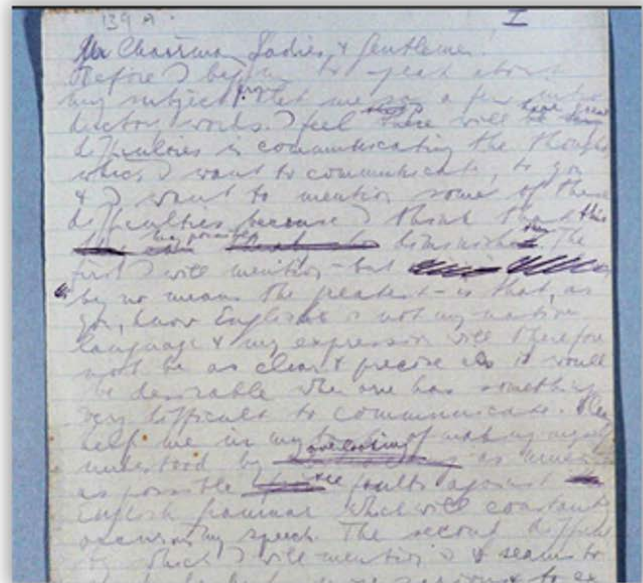 139 A.
I
Mr Chairman, Ladies, & Gentlemen!
Before I begin to speak about
my subject let me say a few intro
ductory words. I feel I shall have great
difficulties in communicating the thoughts
which I want to communicate, to you
& I want to mention some of these
difficulties because I think that this
may possibly diminish them. The
first I will mention – but
by no means the greatest – is that, as
you know English is not my native
language & my expression will therefore
not be as clear & precise as it would
be desirable when one has something
very difficult to communicate. Please
help me in my of making myself
understood by overlooking as much
as possible the faults against
English grammar which will constantly
occur in my speech. The second difficul
ty which I will mention is & seems to